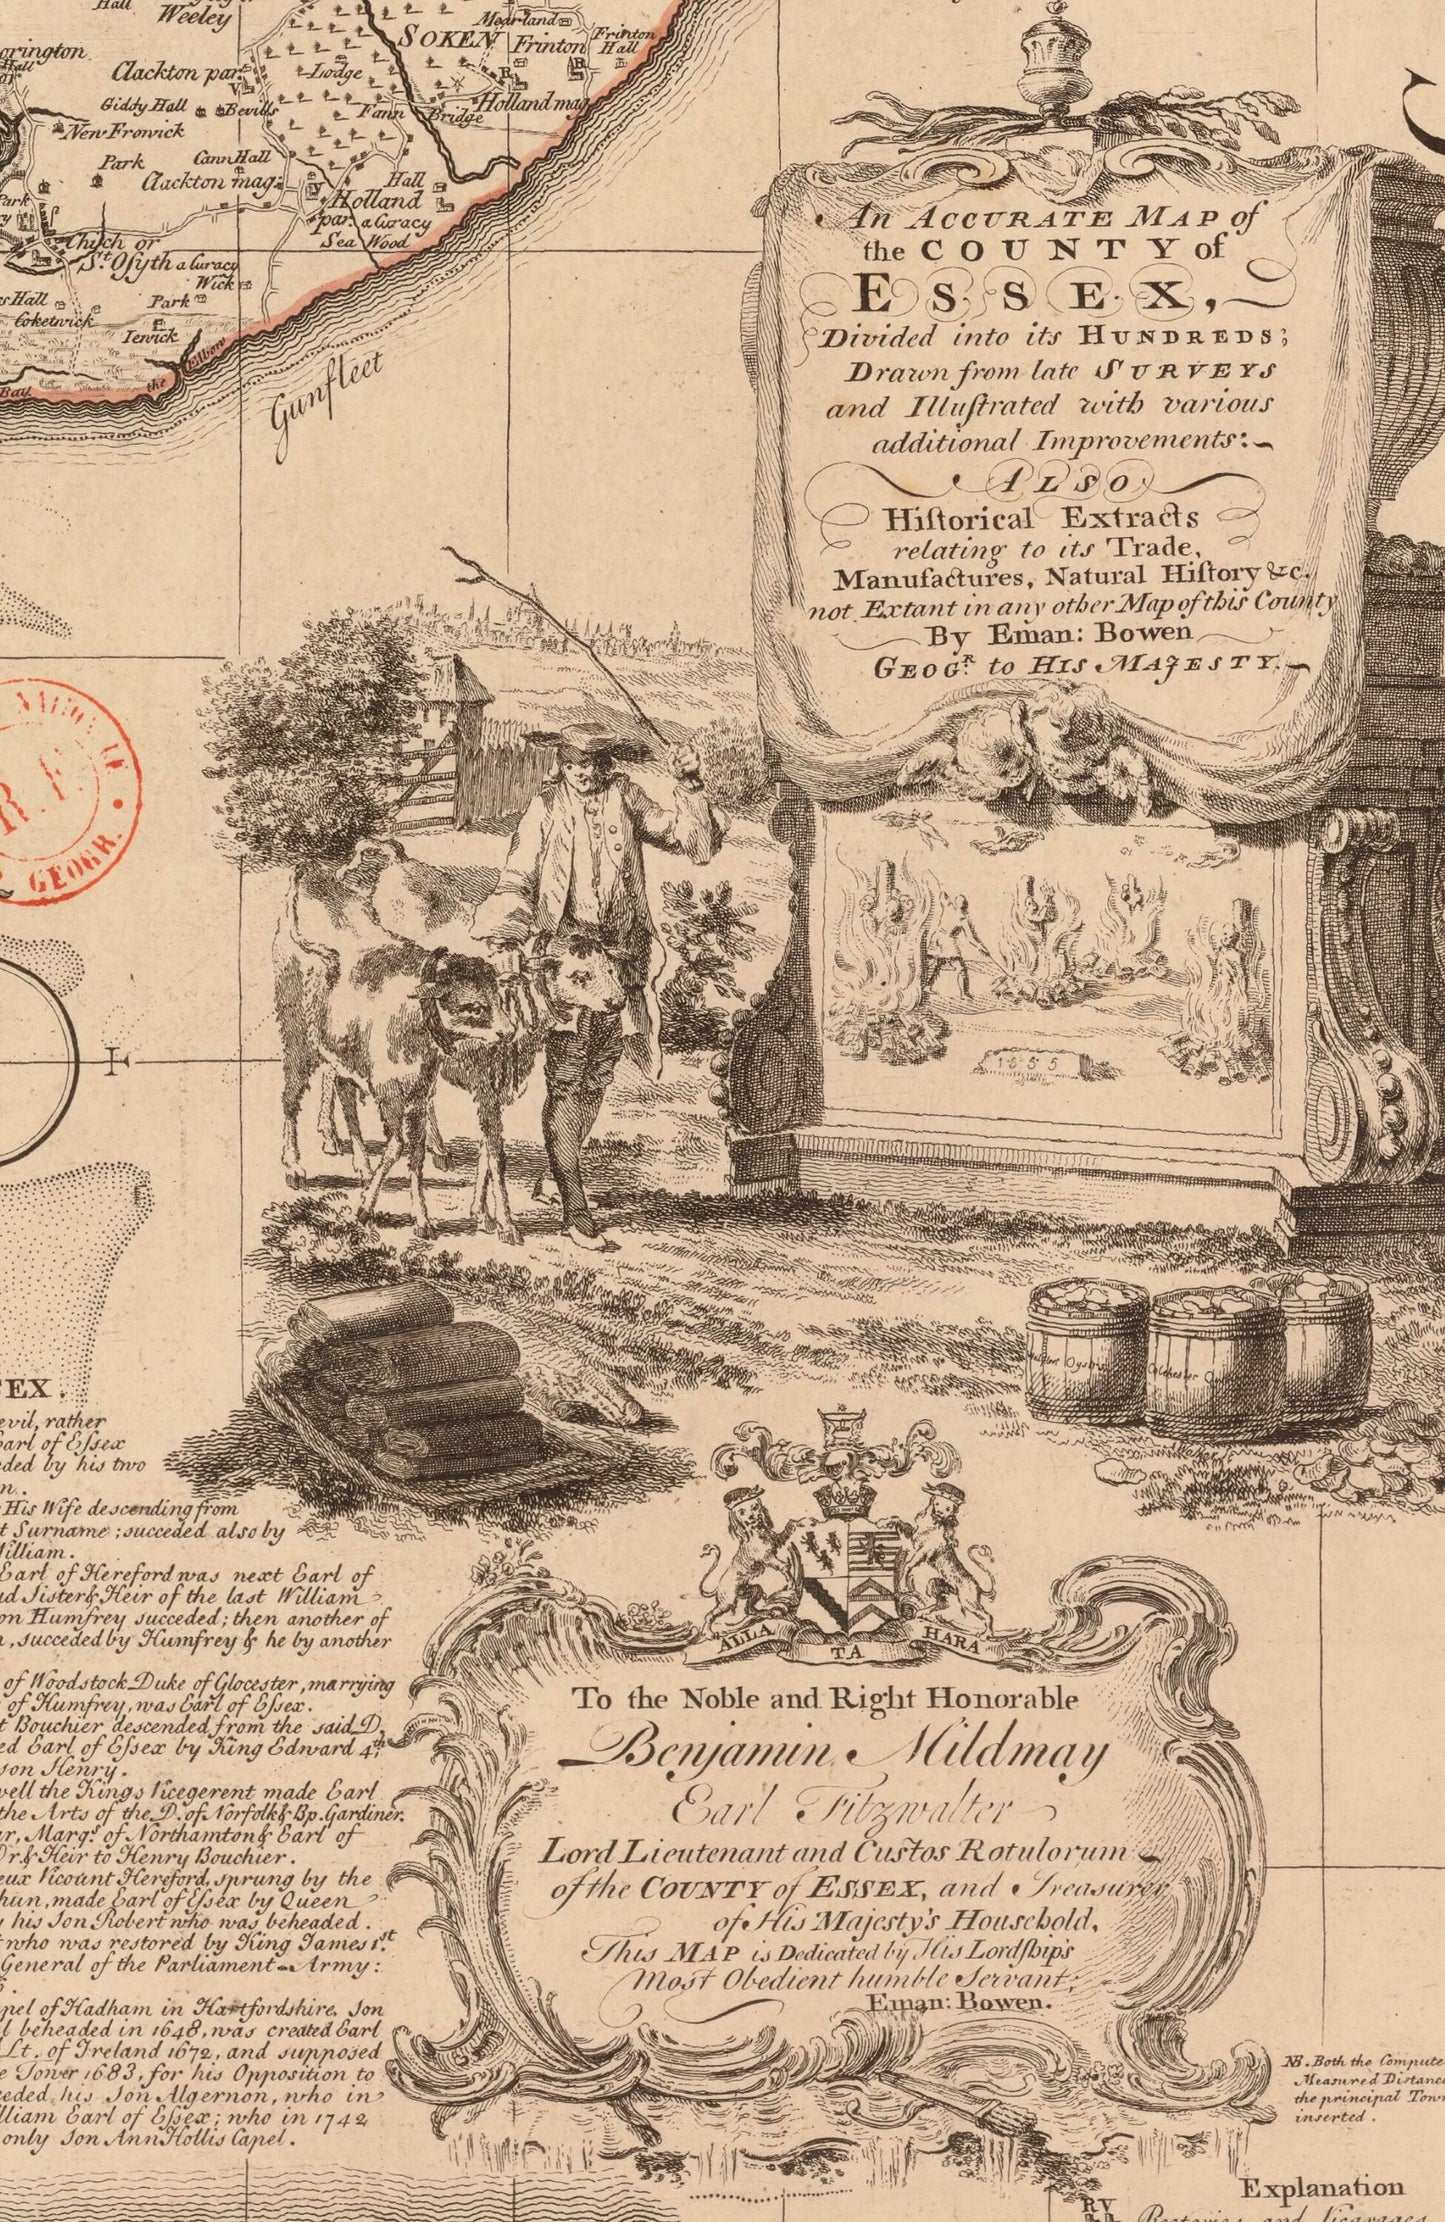 Hall
Weeley
SOKEN
Mearland
Frinton
Frinton
Hall
orrington
Hall
Clackton par.
Lodge
R
R
V
Giddy Hall
Bevills
Fann
Bridge
Holland mag
New Frowick
Park
Cann Hall
Clackton mag:
V
Hall
Holland
par. a Curacy
Sea Wood
Park
Chich or
St. Osyth a Curacy
Wick
s Hall
Park
Coketwick
Iewick
Bay
the Elbow
Gunfleet
An ACCURATE MAP of
the COUNTY of
ESSEX,
Divided into its HUNDREDS;
Drawn from late SURVEYS
and Illuſtrated with various
additional Improvements:
ALSO
Hiſtorical Extracts
relating to its Trade,
Manufactures, Natural Hiſtory &c.
not Extant in any other Map of this County
By Eman: Bowen
GEOGR. to HIS MAJESTY.
R.F.
GEOGR.
E
1555
Colchester
Oysters
ALLA TA HARA
To the Noble and Right Honorable
Benjamin Mildmay
Earl Fitzwalter
Lord Lieutenant and Custos Rotulorum
of the COUNTY of ESSEX, and Treasurer
of His Majesty's Household,
This MAP is Dedicated by His Lordſhip's
Most Obedient humble Servant,
Eman: Bowen.
EX.
evil, rather
Earl of Eſsex
eded by his two
n.
His Wife descending from
t Surname; succeded also by
William.
Earl of Hereford was next Earl of
nd Sister & Heir of the last William
on Humfrey succeded; then another of
, succeded by Humfrey & he by another
of Woodstock Duke of Glocester, marrying
of Humfrey, was Earl of Eſsex.
t Bouchier descended from the said D.
ed Earl of Eſsex by King Edward 4th;
son Henry.
well the Kings Vicegerent made Earl
the Arts of the D. of Norfolk & Bp. Gardiner.
ar, Marqs. of Northamton & Earl of
Dr. & Heir to Henry Bouchier.
eux Vicount Hereford, sprung by the
hun, made Earl of Eſsex by Queen
his Son Robert who was beheaded.
who was restored by King James 1st.
General of the Parliament-Army:
pel of Hadham in Hartfordshire, Son
l beheaded in 1648, was created Earl
Lt. of Ireland 1672, and supposed
e Tower 1683, for his Opposition to
ceded his Son Algernon, who in
lliam Earl of Eſsex; who in 1742
only Son Ann Hollis Capel.
NB. Both the Compute
Measured Distanc
the principal Tow
inserted.
Explanation
RV
Rectories and Vicarages